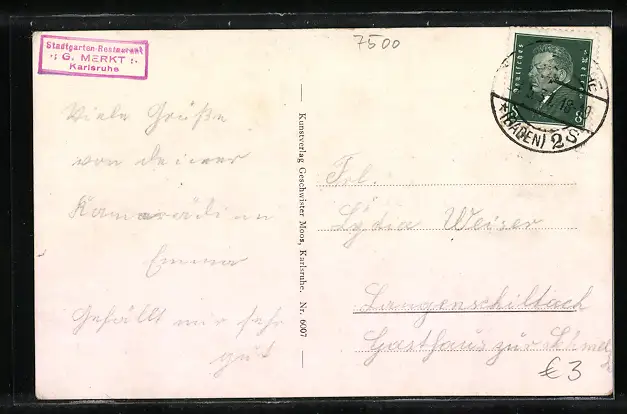 7500
Stadtgarten-Restaurant
G. MERKT
Karlsruhe
Deutsches Reich
8
(BADEN) 2
Viele Grüße
von deiner
Kamaradin
Emma
Gefällt mir sehr
gut
Kunstverlag Geschwister Moos, Karlsruhe. Nr. 6007
Frl.
Lydia Weiser
Langenschiltach
Gasthaus zur
€3